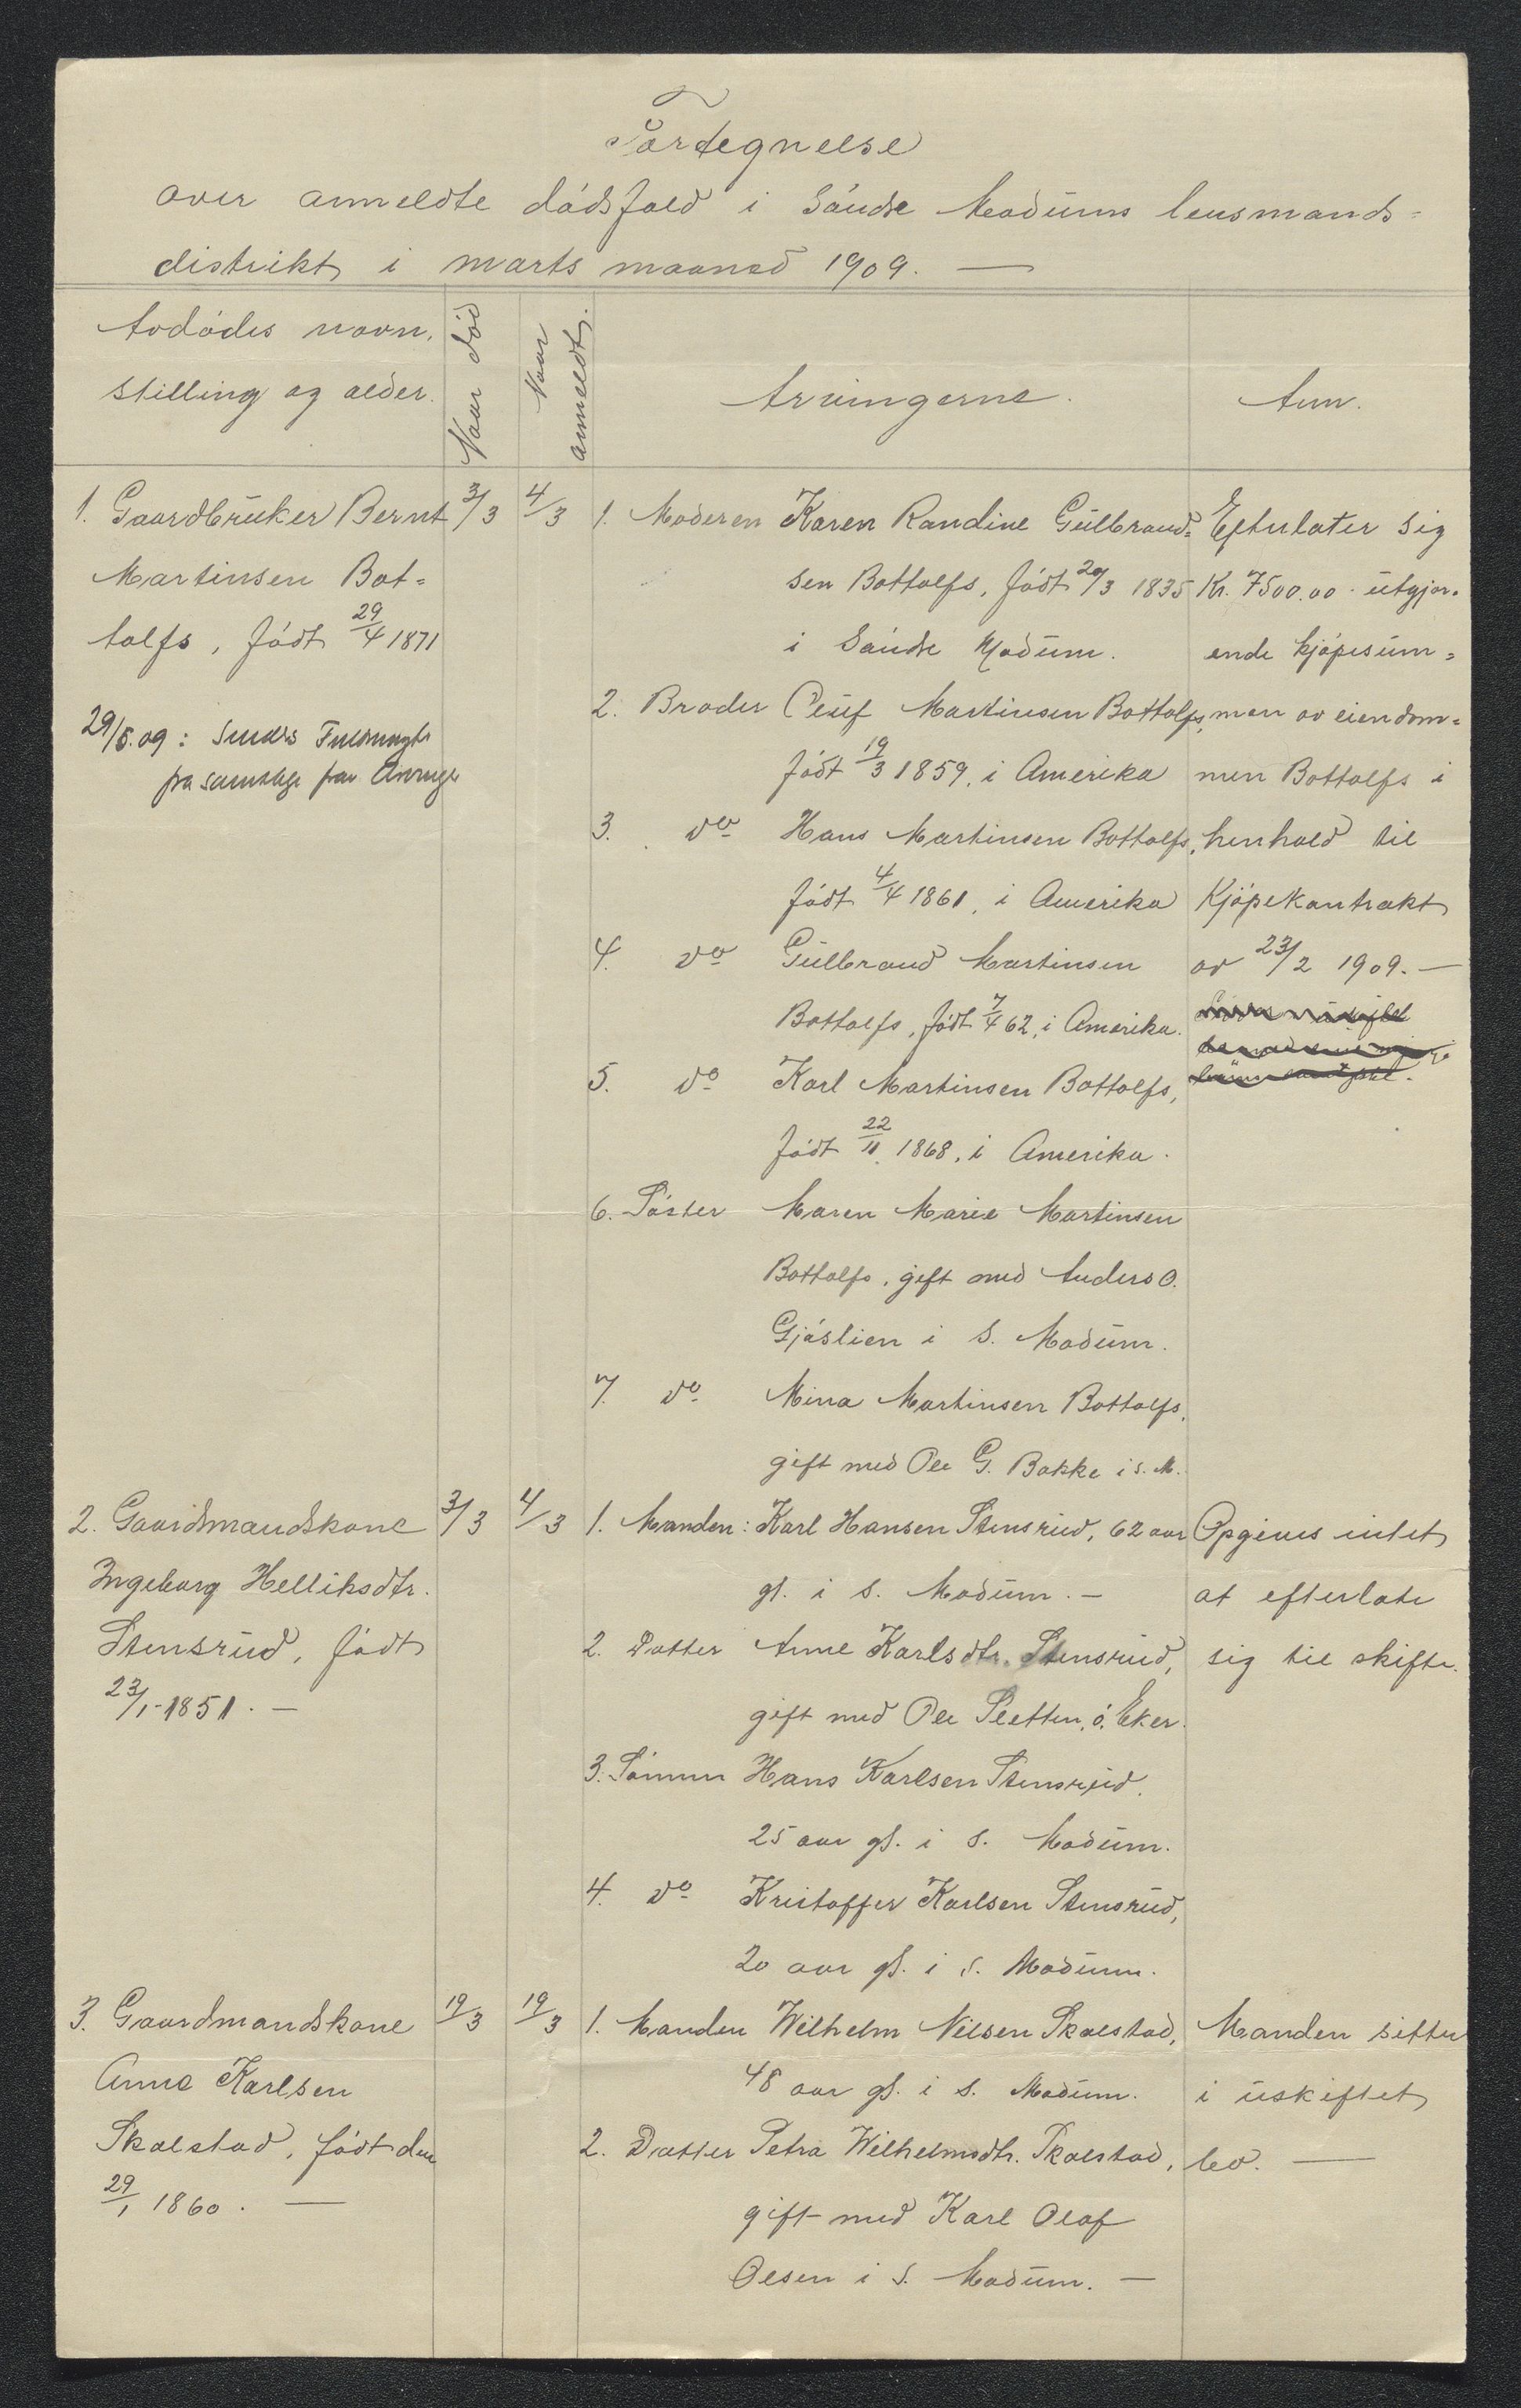 Fortegnelse
over anmeldte dødsfald i Søndre Modums lensmands=
distrikt i marts maaned 1909. —
Avdødes navn,
stilling og alder.
Naar død
Naar
anmeldt.
Arvingerne.
Anm.
1. Gaardbruker Bernt
Martinsen Bot=
tolfs, født 29/4 1871
3/3
4/3
29/5.09:
fra
1. Moderen Karen Randine Gulbrand=
sen Bottolfs, født 20/3 1835
i Søndre Modum.
2. Broder Oluf Martinsen Bottolfs,
født 19/3 1859, i Amerika
3. do Hans Martinsen Bottolfs,
født 4/4 1861, i Amerika
4. do Gulbrand Martinsen
Bottolfs, født 7/4 62, i Amerika.
5. do Karl Martinsen Bottolfs,
født 22/11 1868, i Amerika.
6. Søster Maren Marie Martinsen
Bottolfs, gift med Anders O.
Gjøslien i S. Modum.
7. do Mina Martinsen Bottolfs,
gift med Ole G. Bakke i S. M.
Efterlater sig
Kr. 7500.00 utgjør=
ende kjøpesum=
men av eiendom=
men Bottolfs i
henhold til
Kjøpekontrakt
av 23/2 1909. —
2. Gaardmandskone
Ingeborg Helliksdtr.
Stensrud, født
23/1-1851. —
3/3
4/3
1. Manden: Karl Hansen Stensrud, 62 aar
gl. i S. Modum. —
2. Datter Anne Karlsdtr. Stensrud,
gift med Ole Sletten, ø. Eker.
3. Sønnen Hans Karlsen Stensrud,
25 aar gl. i S. Modum.
4. do Kristoffer Karlsen Stensrud,
20 aar gl. i S. Modum.
Opgives intet
at efterlate
sig til skifte.
3. Gaardmandskone
Anne Karlsen
Skalstad, født den
29/1 1860. —
19/3
19/3
1. Manden Wilhelm Nilsen Skalstad,
48 aar gl. i S. Modum.
2. Datter Petra Wilhelmsdtr. Skalstad,
gift med Karl Olaf
Olsen i S. Modum. —
Manden sitter
i uskiftet
bo. —